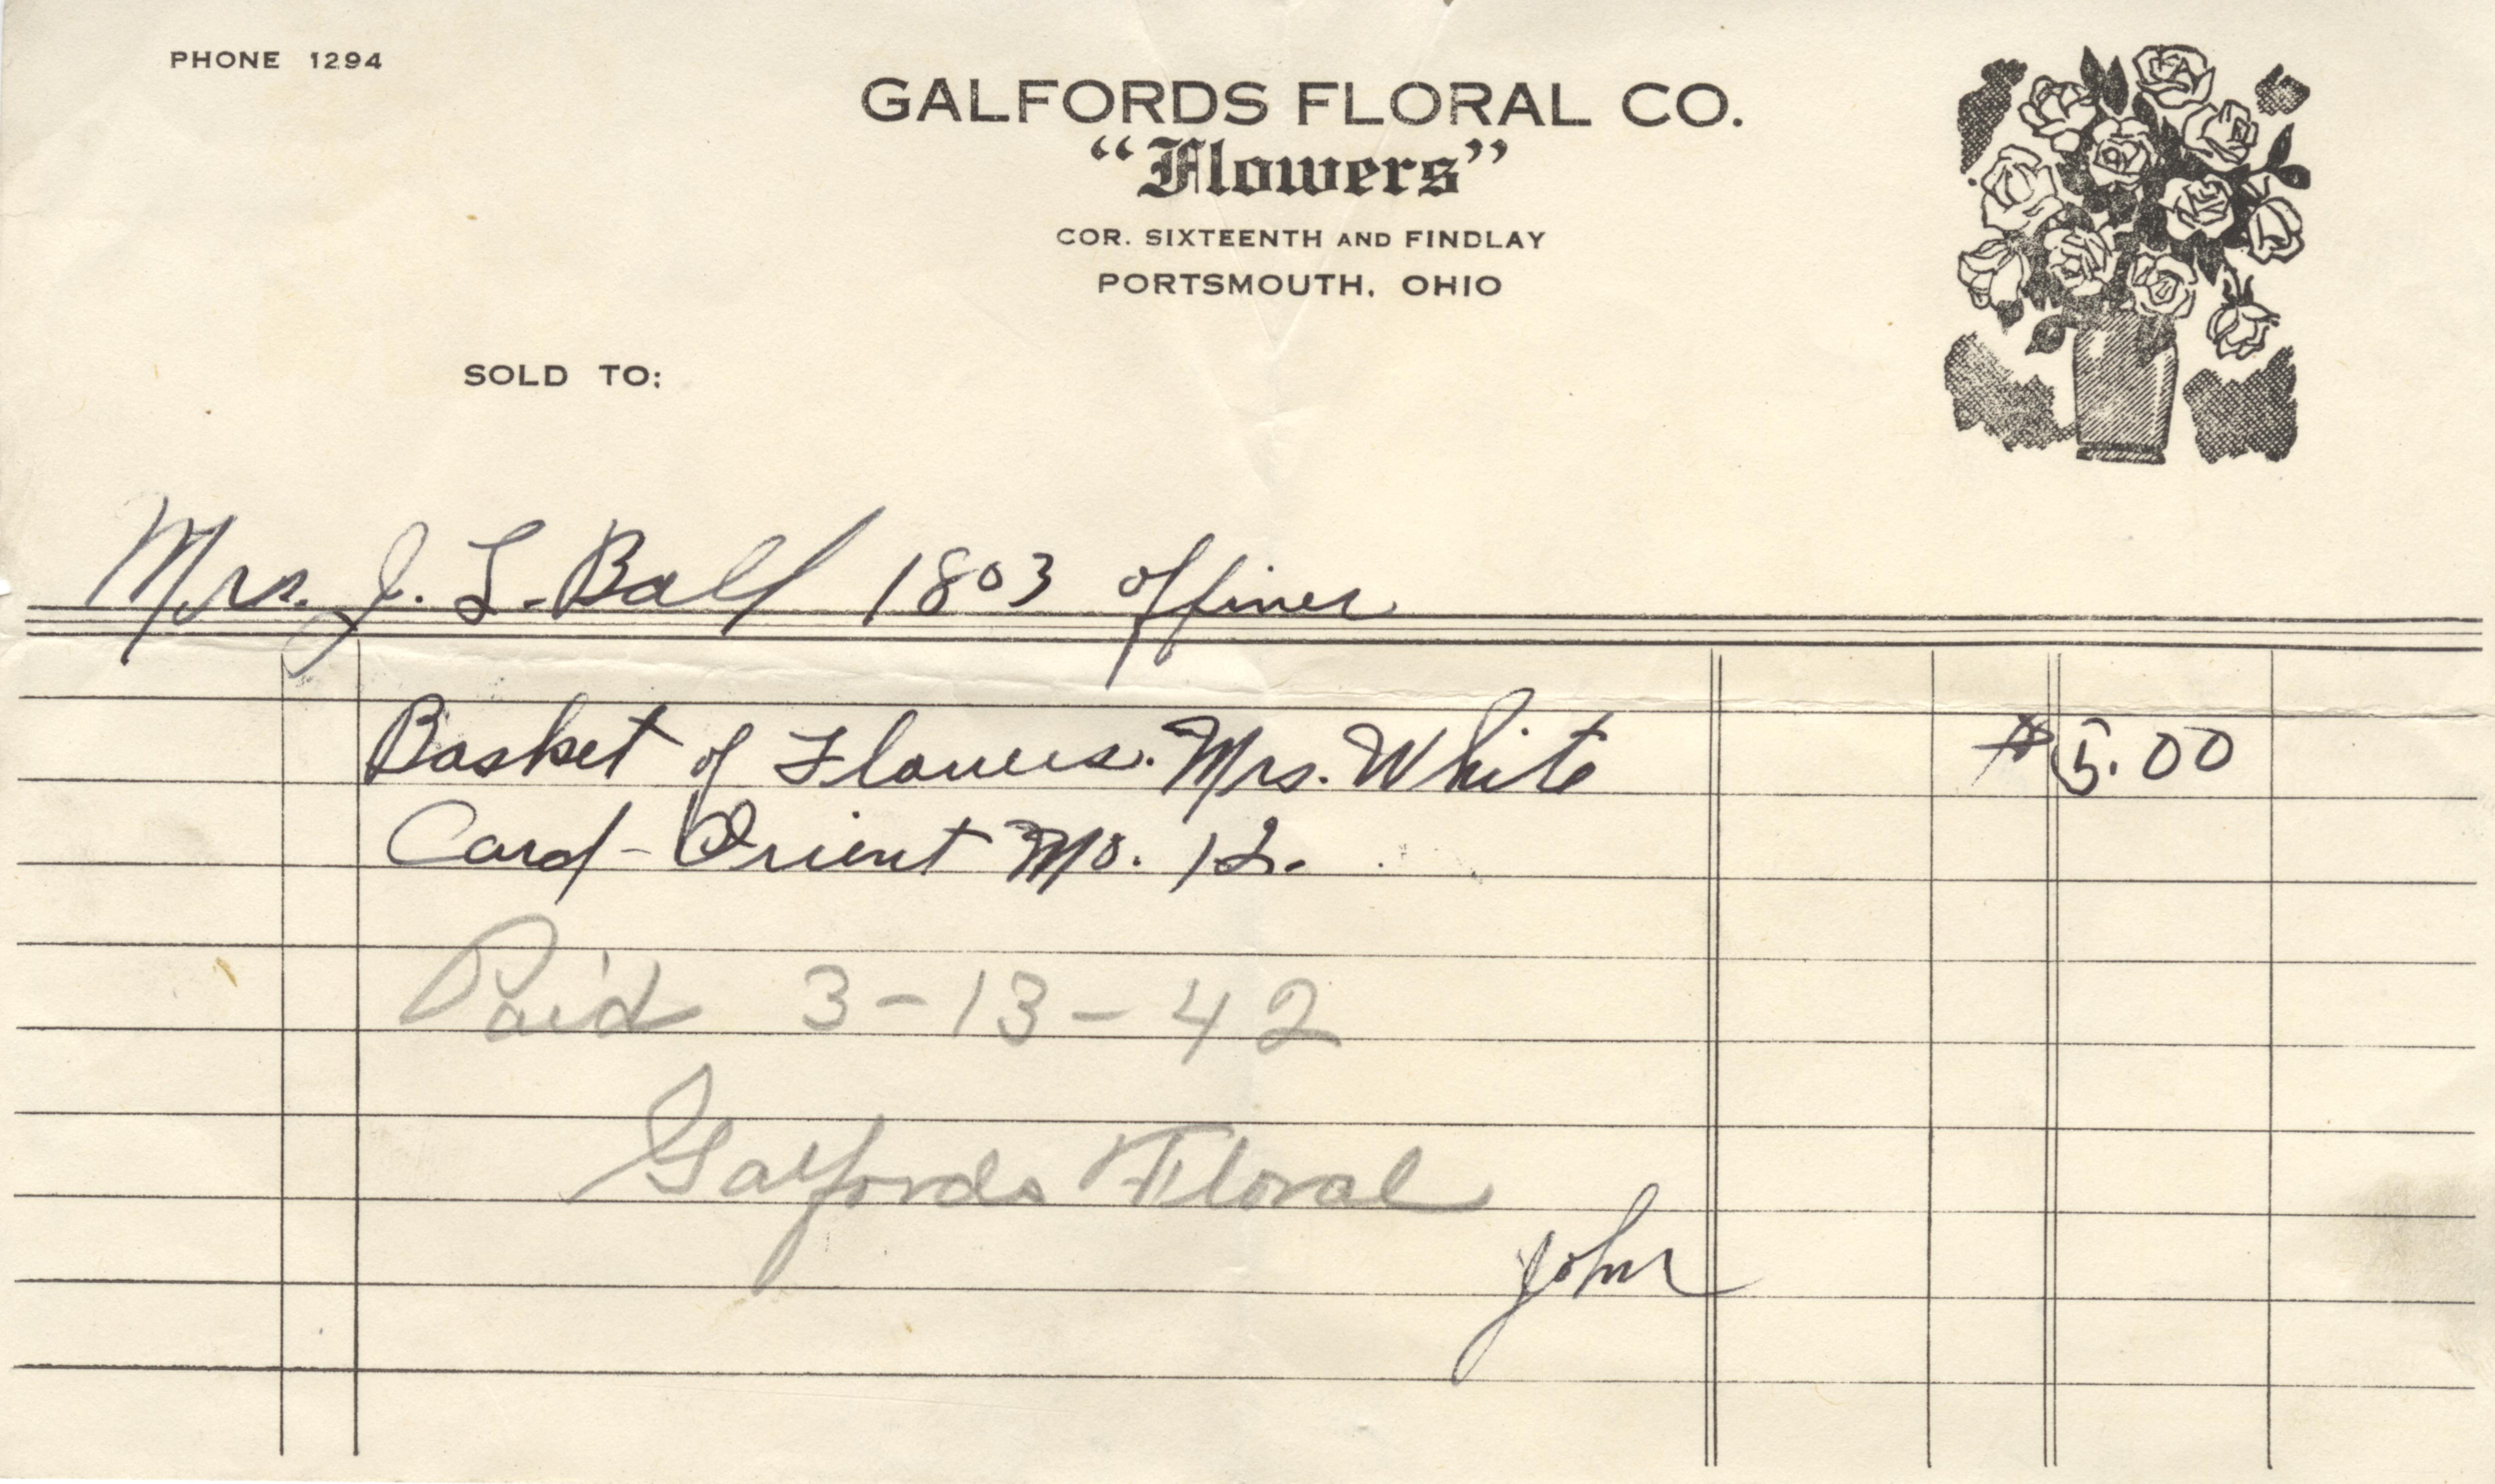 PHONE 1294
GALFORDS FLORAL CO.
“Flowers”
COR. SIXTEENTH AND FINDLAY
PORTSMOUTH, OHIO
SOLD TO:
Mrs. J. L. Ball 1803
Basket of Flowers. Mrs. White $5.00
Card - Orient No. 12.
Paid 3-13-42
Galfords Floral
John